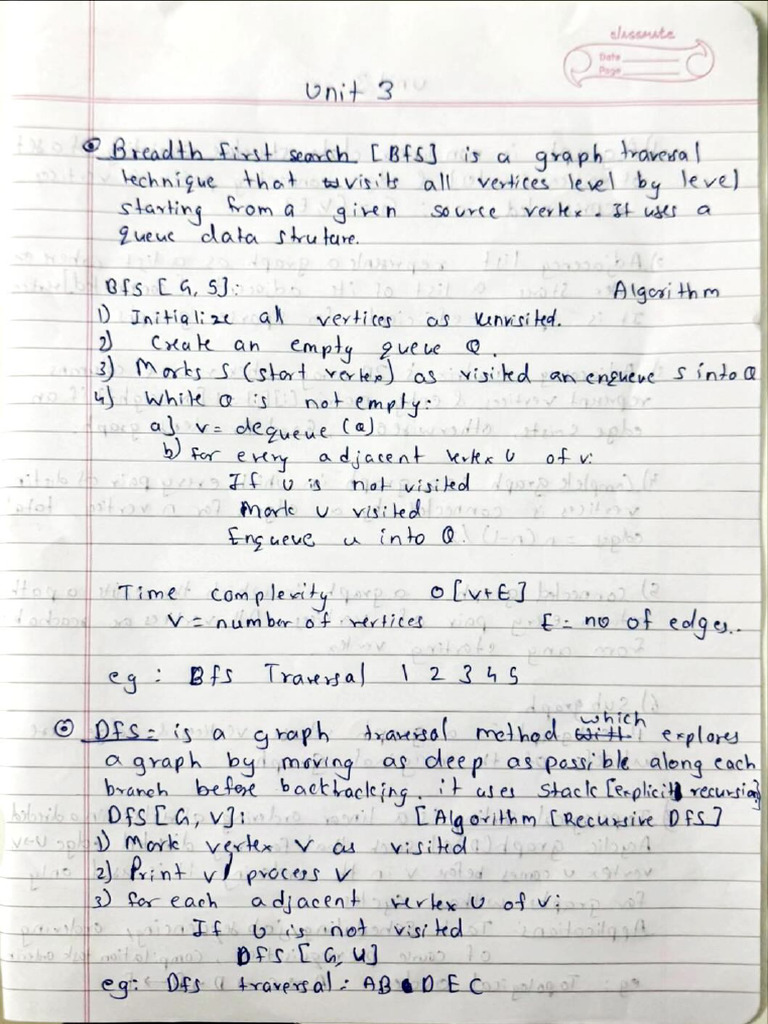 classmate
Date
Page
Unit 3
Breadth first search [BfS] is a graph traversal
technique that visits all vertices level by level
starting from a given source vertex. It uses a
queue data struture.
BfS [G, S]: Algorithm
1) Initialize all vertices as unvisited.
2) Create an empty queue Q.
3) Marks S (start vertex) as visited an enqueue S into Q
4) While Q is not empty:
a) v = dequeue (Q)
b) for every adjacent vertex U of v:
If U is not visited
Mark U visited
Enqueue u into Q.
Time complexity O[V+E]
V = number of vertices E = no of edges..
eg : BfS Traversal 1 2 3 4 5
DfS = is a graph traversal method which explores
a graph by moving as deep as possible along each
branch before backtracking. it uses Stack [explicit recursion]
DfS [G, V]: [Algorithm [Recursive DfS]
1) Mark vertex V as visited
2) Print v / process v
3) for each adjacent vertex U of v:
If U is not visited
DfS [G, U]
eg: Dfs traversal: AB D E C